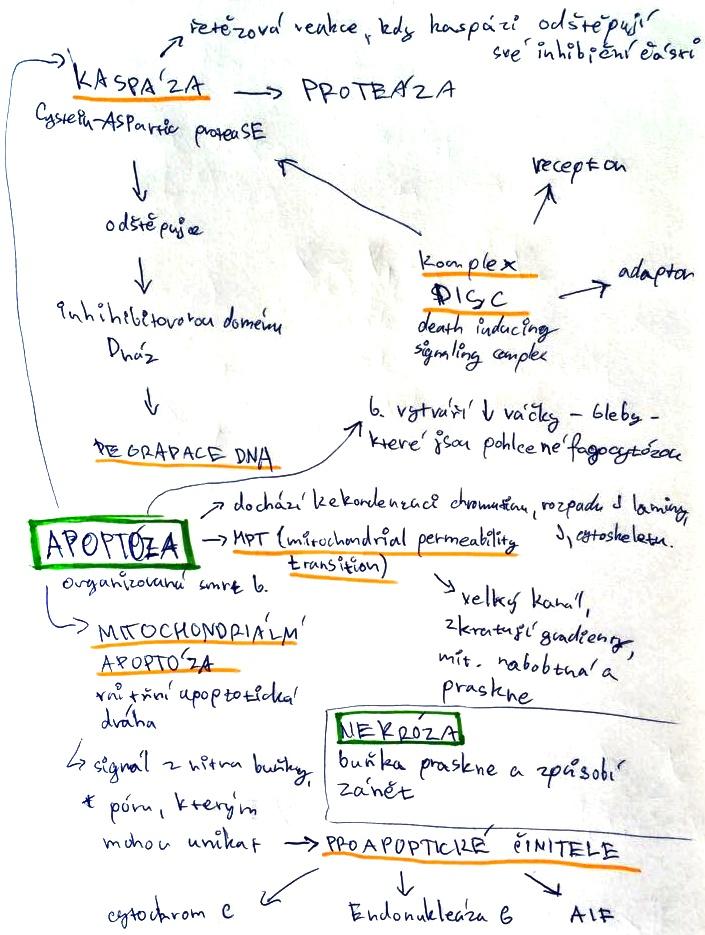 řetězová reakce, kdy kaspázi odštěpují
své inhibiční části
KASPÁZA → PROTEÁZA
Cystein-ASPartic proteaSE
receptor
odštěpuje
komplex
adaptor
DISC
death inducing
signaling complex
inhihibitovorou doménu
Dnáz
b. vytváří ↓ váčky – bleby –
které jsou pohlcené fagocytózou
DEGRADACE DNA
dochází ke kondenzaci chromatinu, rozpadu J laminy,
J, cytoskeletu.
APOPTÓZA → MPT (mitochondrial permeability
transition)
organizovaná smrt b.
velký kanál,
zkratují gradieny,
mit. nabobtná a
praskne
MITOCHONDRIÁLNÍ
APOPTÓZA
vnitřní apoptotická
dráha
NEKRÓZA
buňka praskne a způsobí
zánět
signál z nitra buňky,
* póru, kterým
mohou unikat → PROAPOPTICKÉ ČINITELE
cytochrom C
Endonukleáza G
AIF